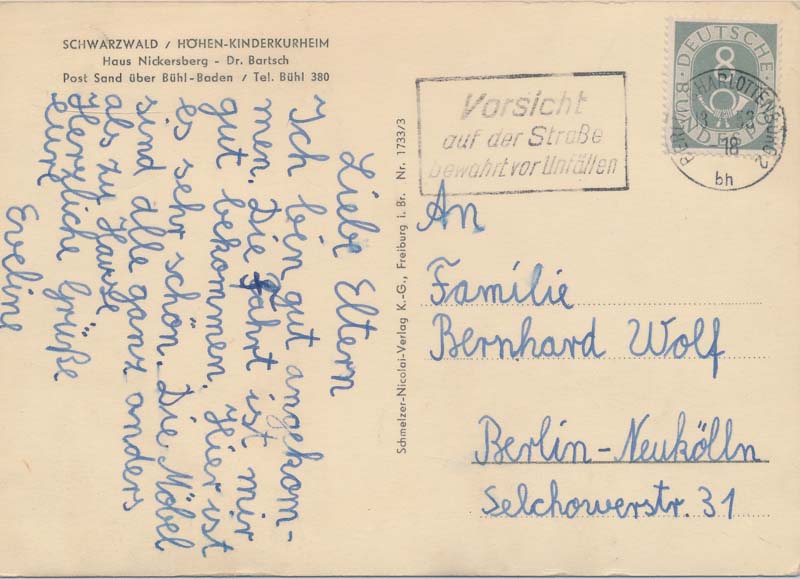 SCHWARZWALD / HÖHEN-KINDERKURHEIM
Haus Nickersberg - Dr. Bartsch
Post Sand über Bühl-Baden / Tel. Bühl 380
Liebe Eltern
Ich bin gut angekom-
men. Die Fahrt ist mir
gut bekommen. Hier ist
es sehr schön. Die Möbel
sind alle ganz anders
als zu Hause
Herzliche Grüße
Eure
Eveline
Schmelzer-Nicolai-Verlag K.-G., Freiburg i. Br. Nr. 1733/3
Vorsicht
auf der Straße
bewahrt vor Unfällen
DEUTSCHE BUNDESPOST
8
BERLIN-CHARLOTTENBURG 2
18
bh
An
Familie
Bernhard Wolf
Berlin-Neukölln
Selchowerstr. 31